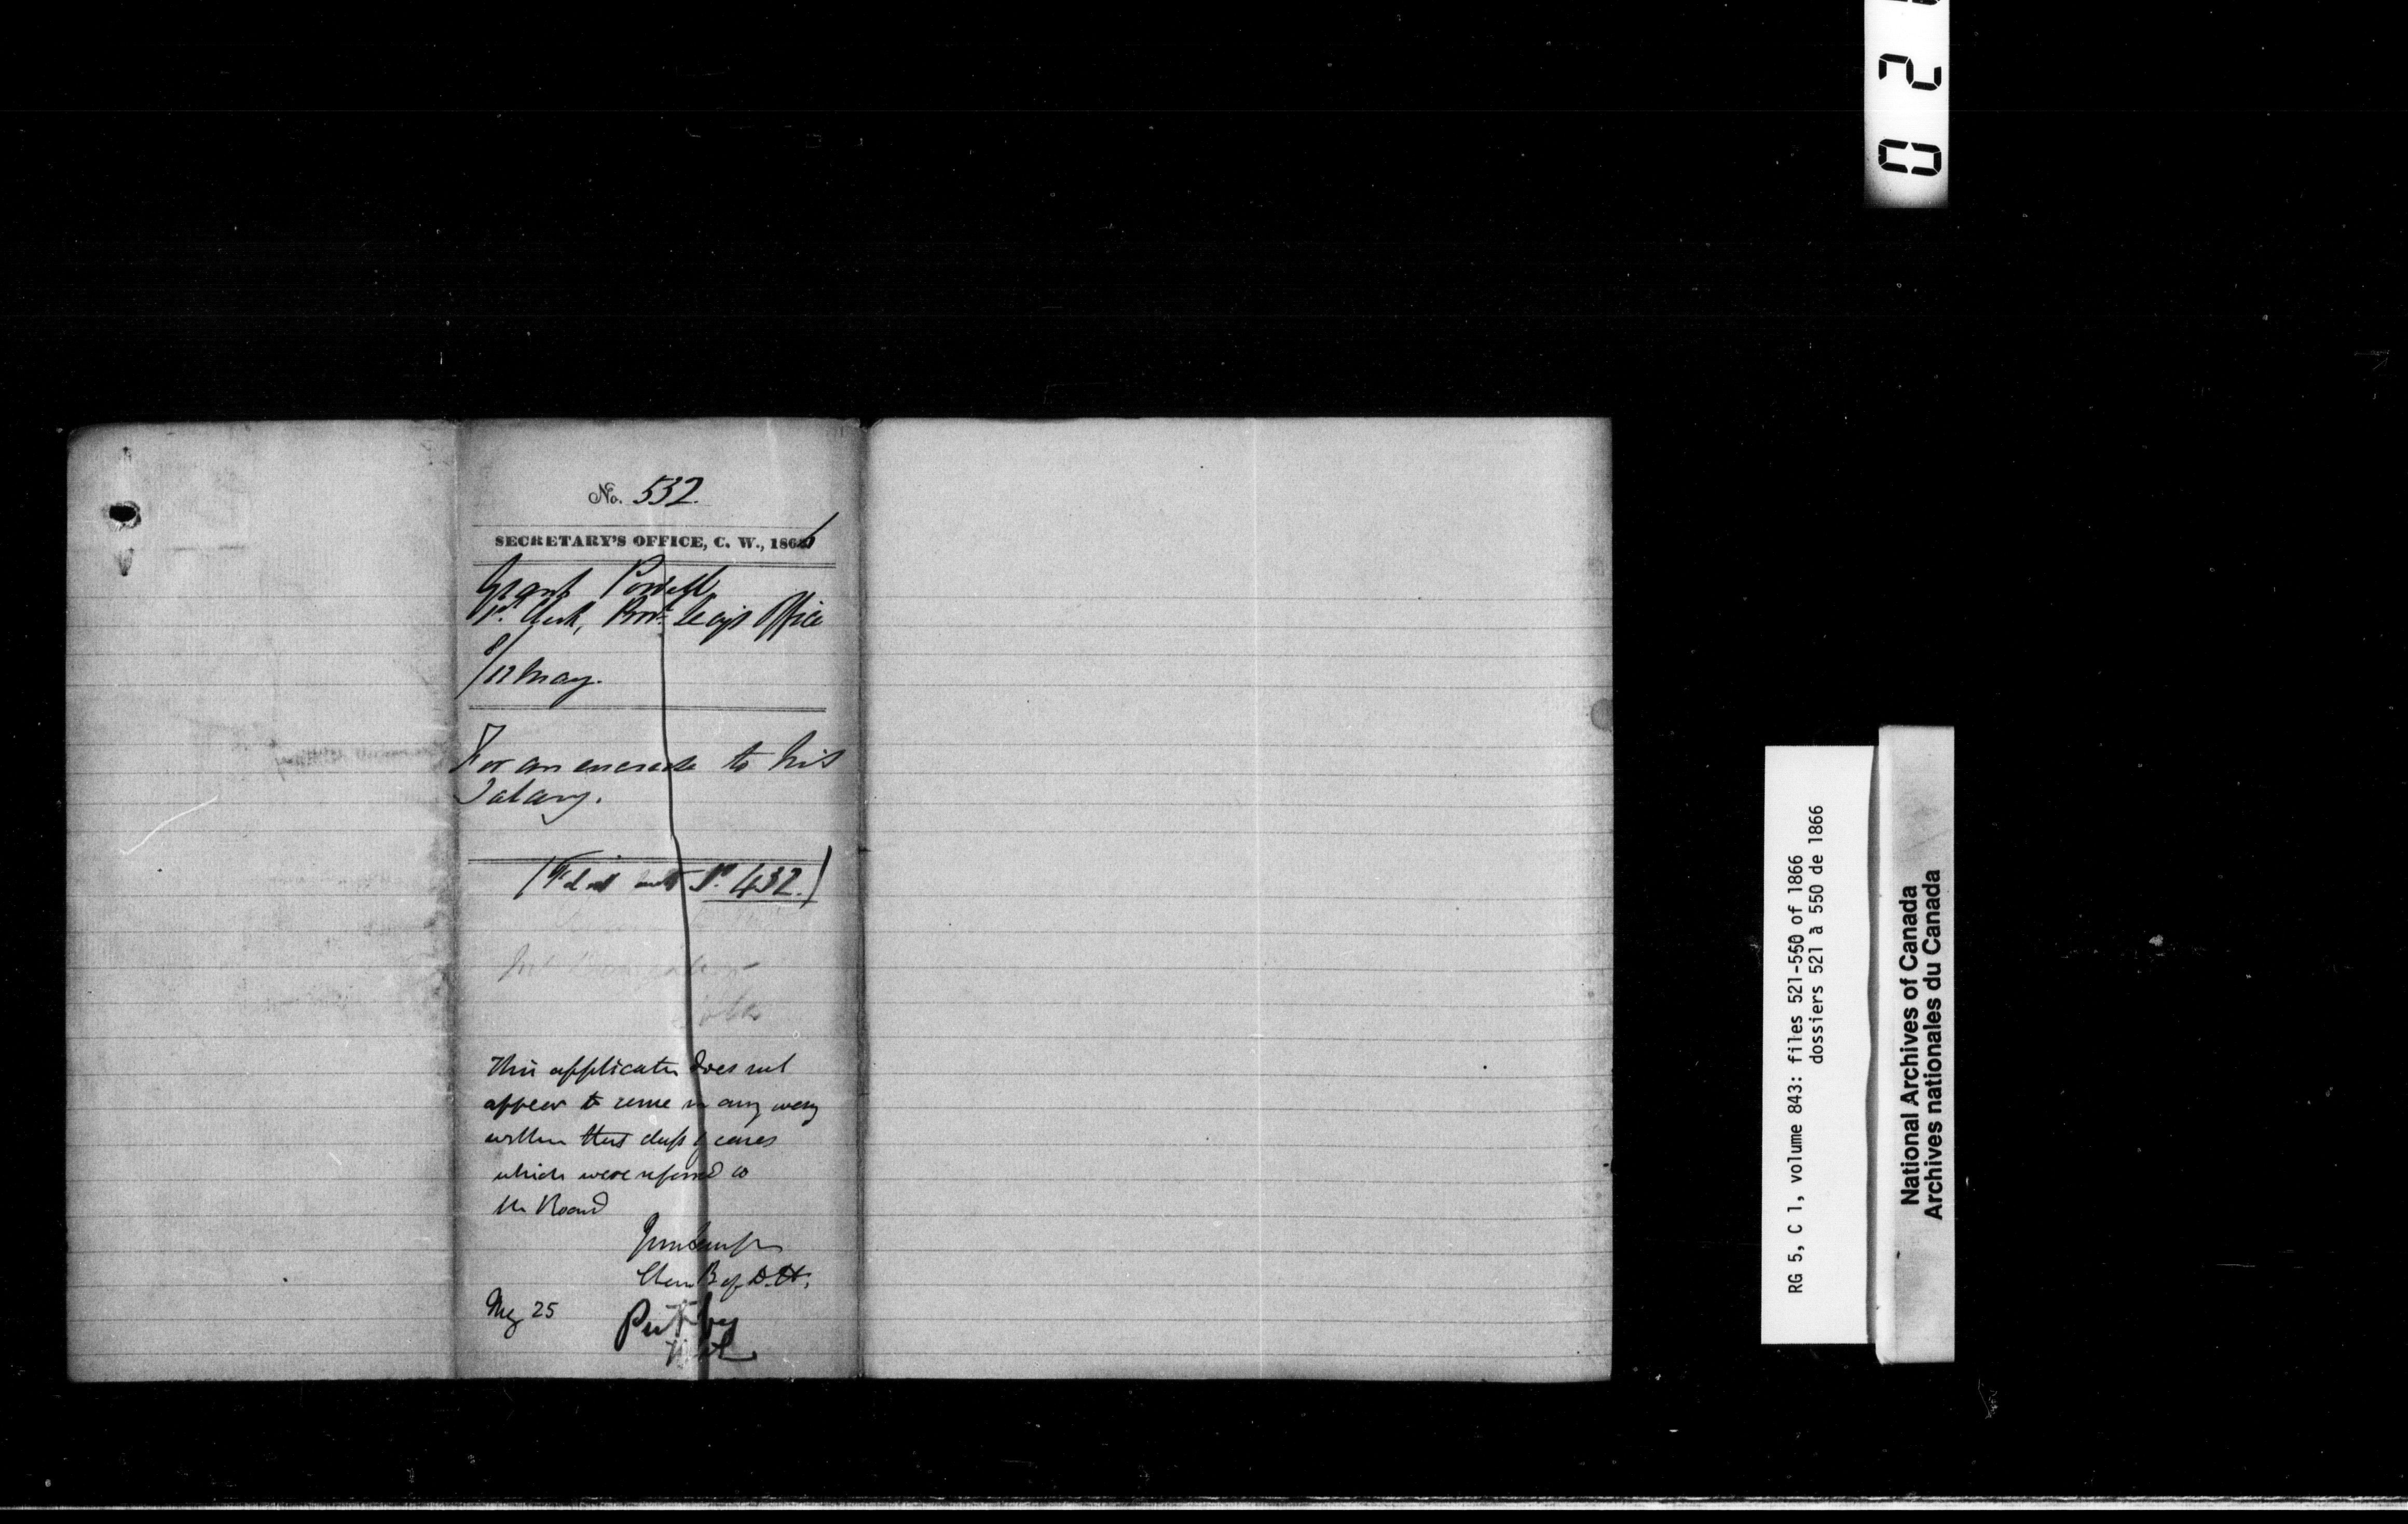 No. 532.
SECRETARY'S OFFICE, C. W., 1866
Grant Powell
1st Clerk, Prov. Sec's Office
8/11 May.
For an encrease to his
Salary.
(Filed with No. 432.)
This application does not
appear to come in any way
within that class of cases
which were referred to
the Board
Chn B of
May 25
Put by
0 2
RG 5, C 1, volume 843: files 521-550 of 1866
dossiers 521 à 550 de 1866
National Archives of Canada
Archives nationales du Canada